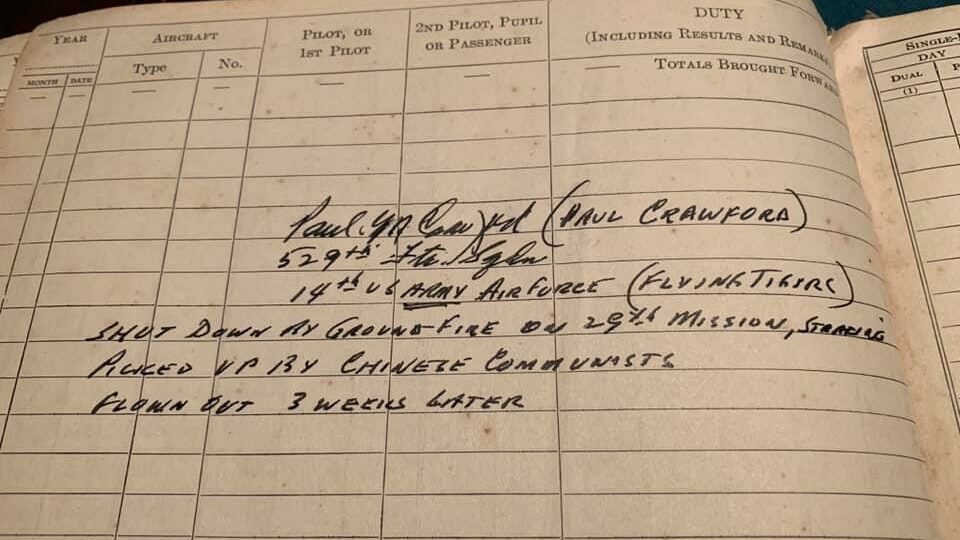 YEAR
AIRCRAFT
PILOT, OR
1ST PILOT
2ND PILOT, PUPIL
OR PASSENGER
DUTY
(INCLUDING RESULTS AND REMARK
MONTH DATE
Type
No.
TOTALS BROUGHT FORWA
SINGLE-
DAY
DUAL
(1)
Paul (PAUL CRAWFORD)
529th Ftr. Sqdn
14th US ARMY AIRFORCE (FLYING TIGERS)
SHOT DOWN BY GROUND FIRE ON 29th MISSION, STRAFING
PICKED UP BY CHINESE COMMUNISTS
FLOWN OUT 3 WEEKS LATER